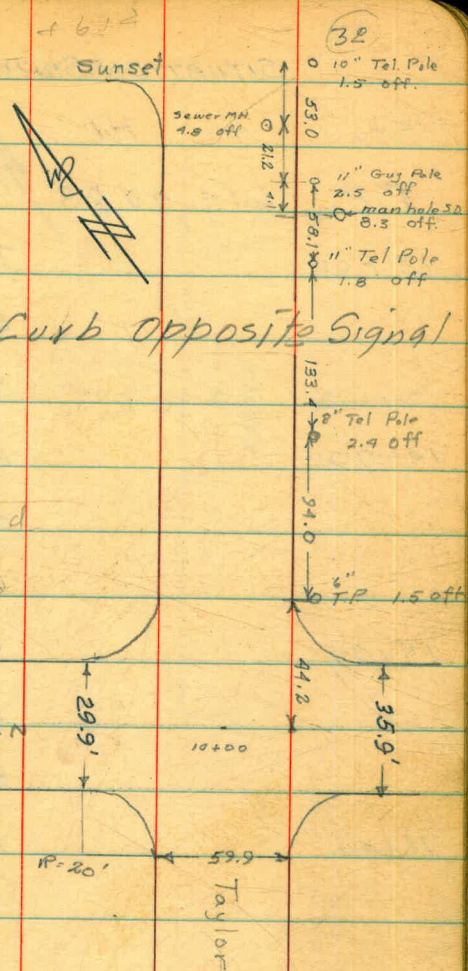 32
Sunset
10" Tel. Pole
1.5 off.
53.0
Sewer MH
4.8 off
21.2
11" Guy Pole
2.5 off
4.1
man hole S.D.
8.3 off.
58.1
11" Tel Pole
1.8 off
Curb opposite Signal
133.4
8" Tel Pole
2.4 off
94.0
6"
T.P. 1.5 off
44.2
29.9'
35.9'
10+00
59.9
R=20'
Taylor